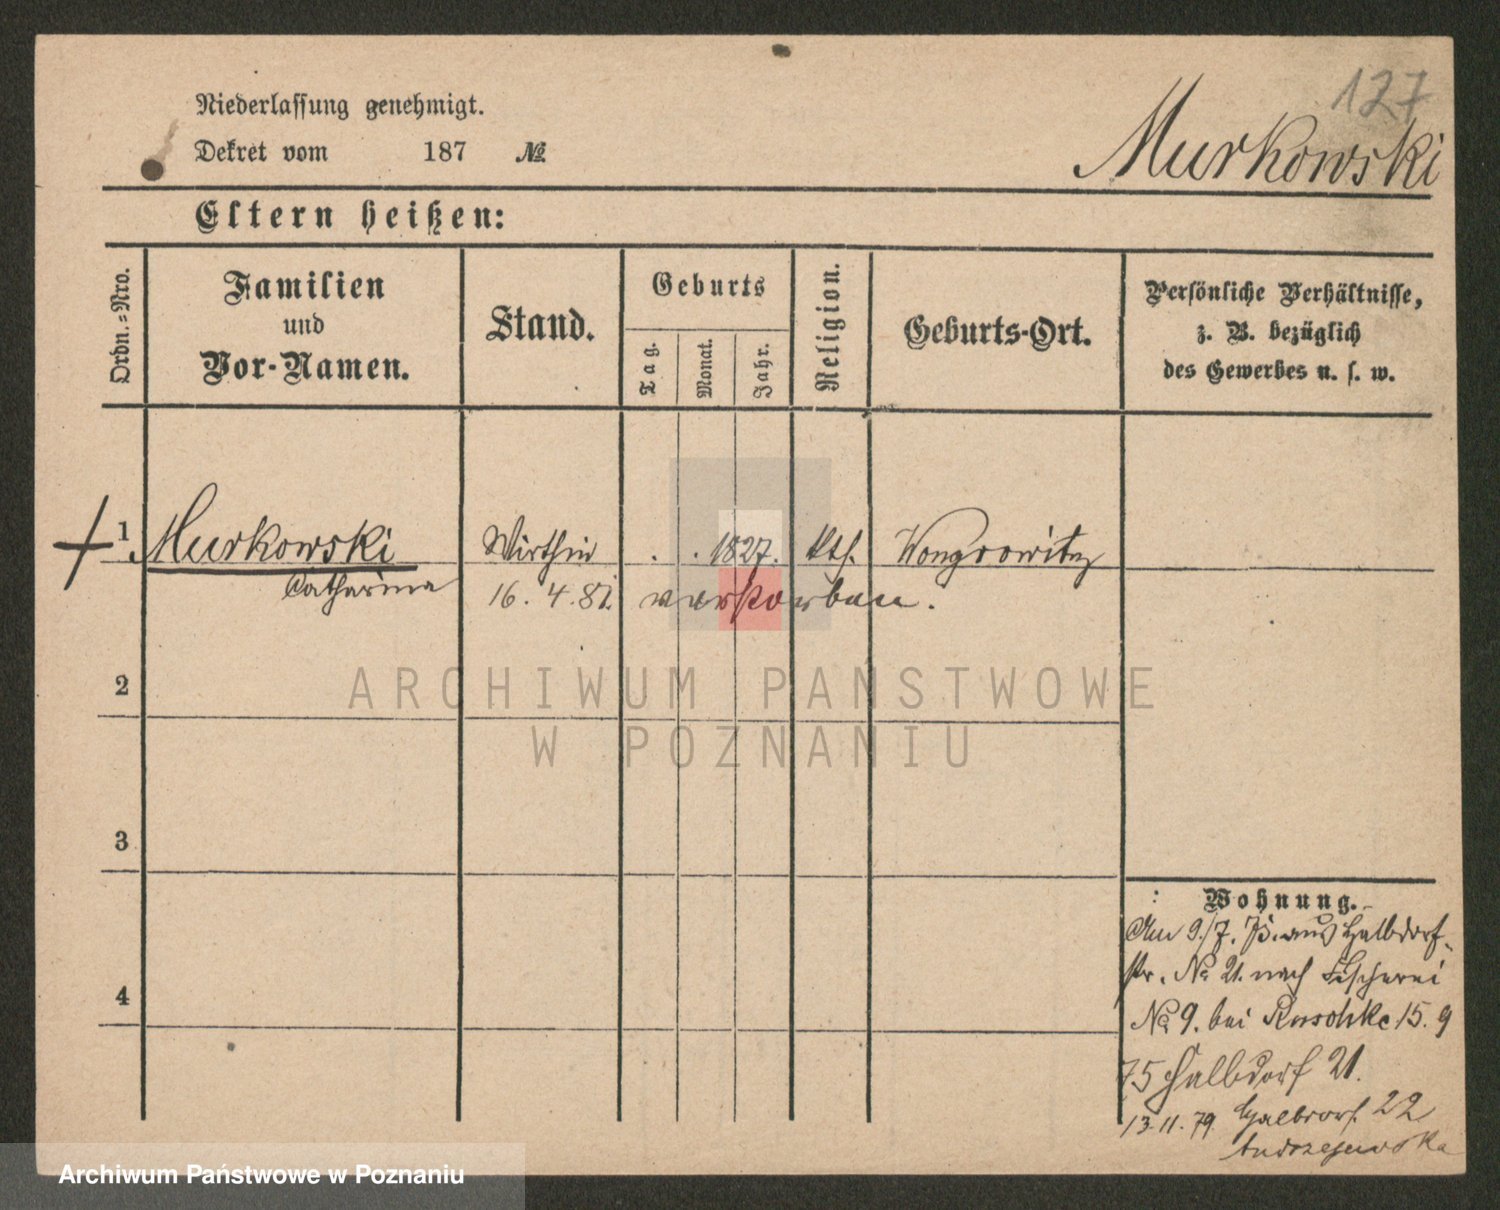 127
Niederlassung genehmigt.
Dekret vom 187 №
Murkowski
Eltern heißen:
Ordn.=Nro.
Familien
und
Vor-Namen.
Stand.
Geburts
Tag.
Monat.
Jahr.
Religion.
Geburts-Ort.
Persönliche Verhältnisse,
z. B. bezüglich
des Gewerbes u. s. w.
1 Murkowski Wirthin . . 1827. kth. Wongrowitz
Catharina 16. 4. 81. verstorben.
2
ARCHIWUM PAŃSTWOWE
W POZNANIU
3
Wohnung.
Am 9./7. 75. aus Halbdorf-
str. № 21. nach Fischerei
4
№ 9. bei 15. 9
75 Halbdorf 21.
13. 11. 79. Halbdorf. 22
Andrzejewska
Archiwum Państwowe w Poznaniu